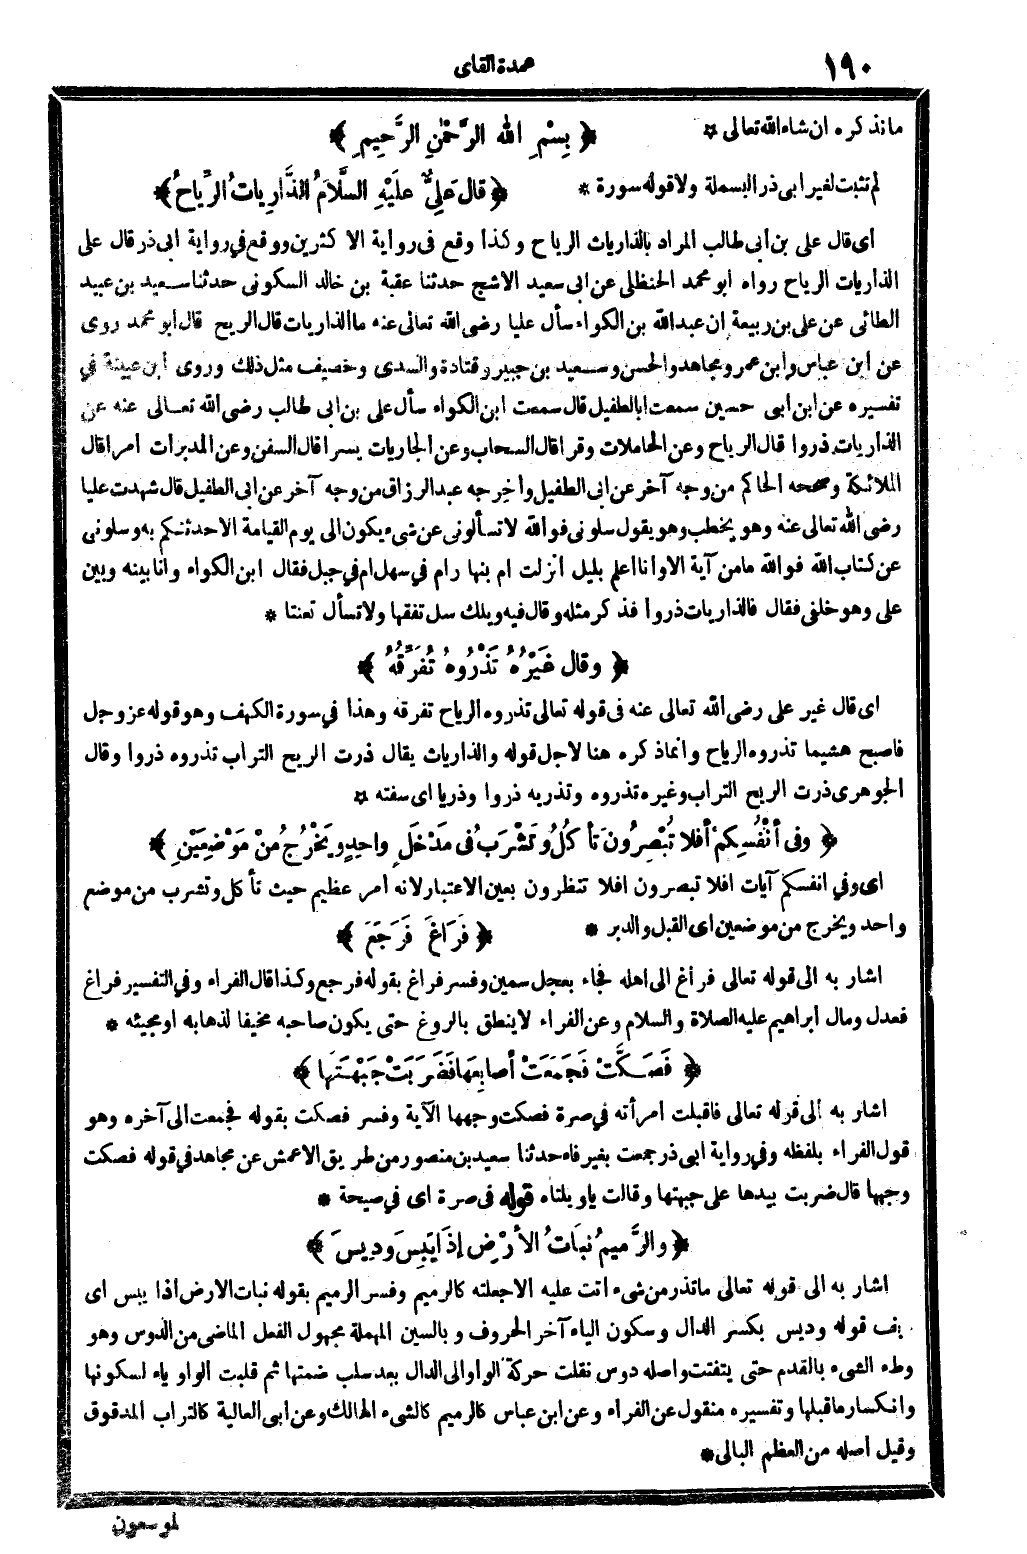 ١٩٠
عمدة القاى
ما نذكره ان شاء الله تعالى * ﴿ بِسْمِ الله الرَّحْمٰنِ الرَّحِيمِ ﴾
لم تثبت لغير ابى ذر البسملة ولا قوله سورة * ﴿ قال عَلِيٌّ عليْهِ السَّلامُ الذَّارِياتُ الرِّياحُ ﴾
أى قال على بن أبى طالب المراد بالذاريات الرياح وكذا وقع فى رواية الاكثرين ووقع في رواية ابى ذر قال على
الذاريات الرياح رواه ابو محمد الحنظلى عن ابى سعيد الاشج حدثنا عقبة بن خالد السكونى حدثنا سعيد بن عبيد
الطائى عن على بن ربيعة ان عبدالله بن الكواء سأل عليا رضى الله تعالى عنه ما الذاريات قال الريح قال ابو محمد روى
عن ابن عباس وابن عمر ومجاهد والحسن وسعيد بن جبير وقتادة والسدى وخصيف مثل ذلك وروى ابن عيينة في
تفسيره عن ابن أبى حسين سمعت ابا الطفيل قال سمعت ابن الكواء سأل على بن ابى طالب رضى الله تعالى عنه عن
الذاريات ذروا قال الرياح وعن الحاملات وقرا قال السحاب وعن الجاريات يسرا قال السفن وعن المدبرات امرا قال
الملائكة وصححه الحاكم من وجه آخر عن ابى الطفيل وأخرجه عبد الرزاق من وجه آخر عن ابى الطفيل قال شهدت عليا
رضى الله تعالى عنه وهو يخطب وهو يقول سلونى فوالله لا تسألونى عن شىء يكون الى يوم القيامة الا حدثنكم به وسلونى
عن كتاب الله فوالله ما من آية الا وانا اعلم بليل انزلت ام بنهار ام في سهل ام في جبل فقال ابن الكواء وانا بينه وبين
على وهو خلفى فقال فالذاريات ذروا فذكر مثله وقال فيه ويلك سل تفقها ولا تسأل تعنتا *
﴿ وقال غَيْرُهُ تَذْرُوهُ تُفَرِّقُهُ ﴾
اى قال غير على رضى الله تعالى عنه فى قوله تعالى تذروه الرياح تفرقه وهذا في سورة الكهف وهو قوله عز وجل
فاصبح هشيما تذروه الرياح وانما ذكره هنا لاجل قوله والذاريات يقال ذرت الريح التراب تذروه ذروا وقال
الجوهرى ذرت الريح التراب وغيره تذروه وتذريه ذروا وذريا اى سفته *
﴿ وفى أنْفُسِكُمْ أفلا تُبْصِرُونَ تأكُلُ وتَشْرَبُ فى مَدْخَلٍ واحِدٍ ويَخْرُجُ مِنْ مَوْضِعَيْنِ ﴾
اى وفي انفسكم آيات افلا تبصرون افلا تنظرون بعين الاعتبار لانه امر عظيم حيث تأكل وتشرب من موضع
واحد ويخرج من موضعين اى القبل والدبر * ﴿ فَرَاغَ فَرَجَعَ ﴾
اشار به الى قوله تعالى فراغ الى اهله فجاء بعجل سمين وفسر فراغ بقوله فرجع وكذا قال الفراء وفي التفسير فراغ
فعدل ومال ابراهيم عليه الصلاة والسلام وعن الفراء لا ينطق بالروغ حتى يكون صاحبه مخفيا لذهابه او مجيئه *
﴿ فَصَكَّتْ فَجَمَعَتْ أصابِعَها فَضَرَبَتْ جَبْهَتَها ﴾
اشار به الى قوله تعالى فاقبلت امرأته في صرة فصكت وجهها الآية وفسر فصكت بقوله فجمعت الى آخره وهو
قول الفراء بلفظه وفي رواية ابى ذر جمعت بغير فاء حدثنا سعيد بن منصور من طريق الاعمش عن مجاهد في قوله فصكت
وجهها قال ضربت بيدها على جبهتها وقالت ياويلتاه قوله فى صرة اى في صيحة *
﴿ والرَّمِيمُ نَباتُ الأرْضِ إذَا يَبِسَ ودِيسَ ﴾
اشار به الى قوله تعالى ماتذر من شىء اتت عليه الا جعلته كالرميم وفسر الرميم بقوله نبات الارض اذا يبس اى
يف قوله وديس بكسر الدال وسكون الياء آخر الحروف وبالسين المهملة مجهول الفعل الماضى من الدوس وهو
وطء الشىء بالقدم حتى يتفتت واصله دوس نقلت حركة الواو الى الدال بعد سلب ضمتها ثم قلبت الواو ياء لسكونها
وانكسار ما قبلها وتفسيره منقول عن الفراء وعن ابن عباس كالرميم كالشىء الهالك وعن أبى العالية كالتراب المدقوق
وقيل أصله من العظم البالى *
لموسعون